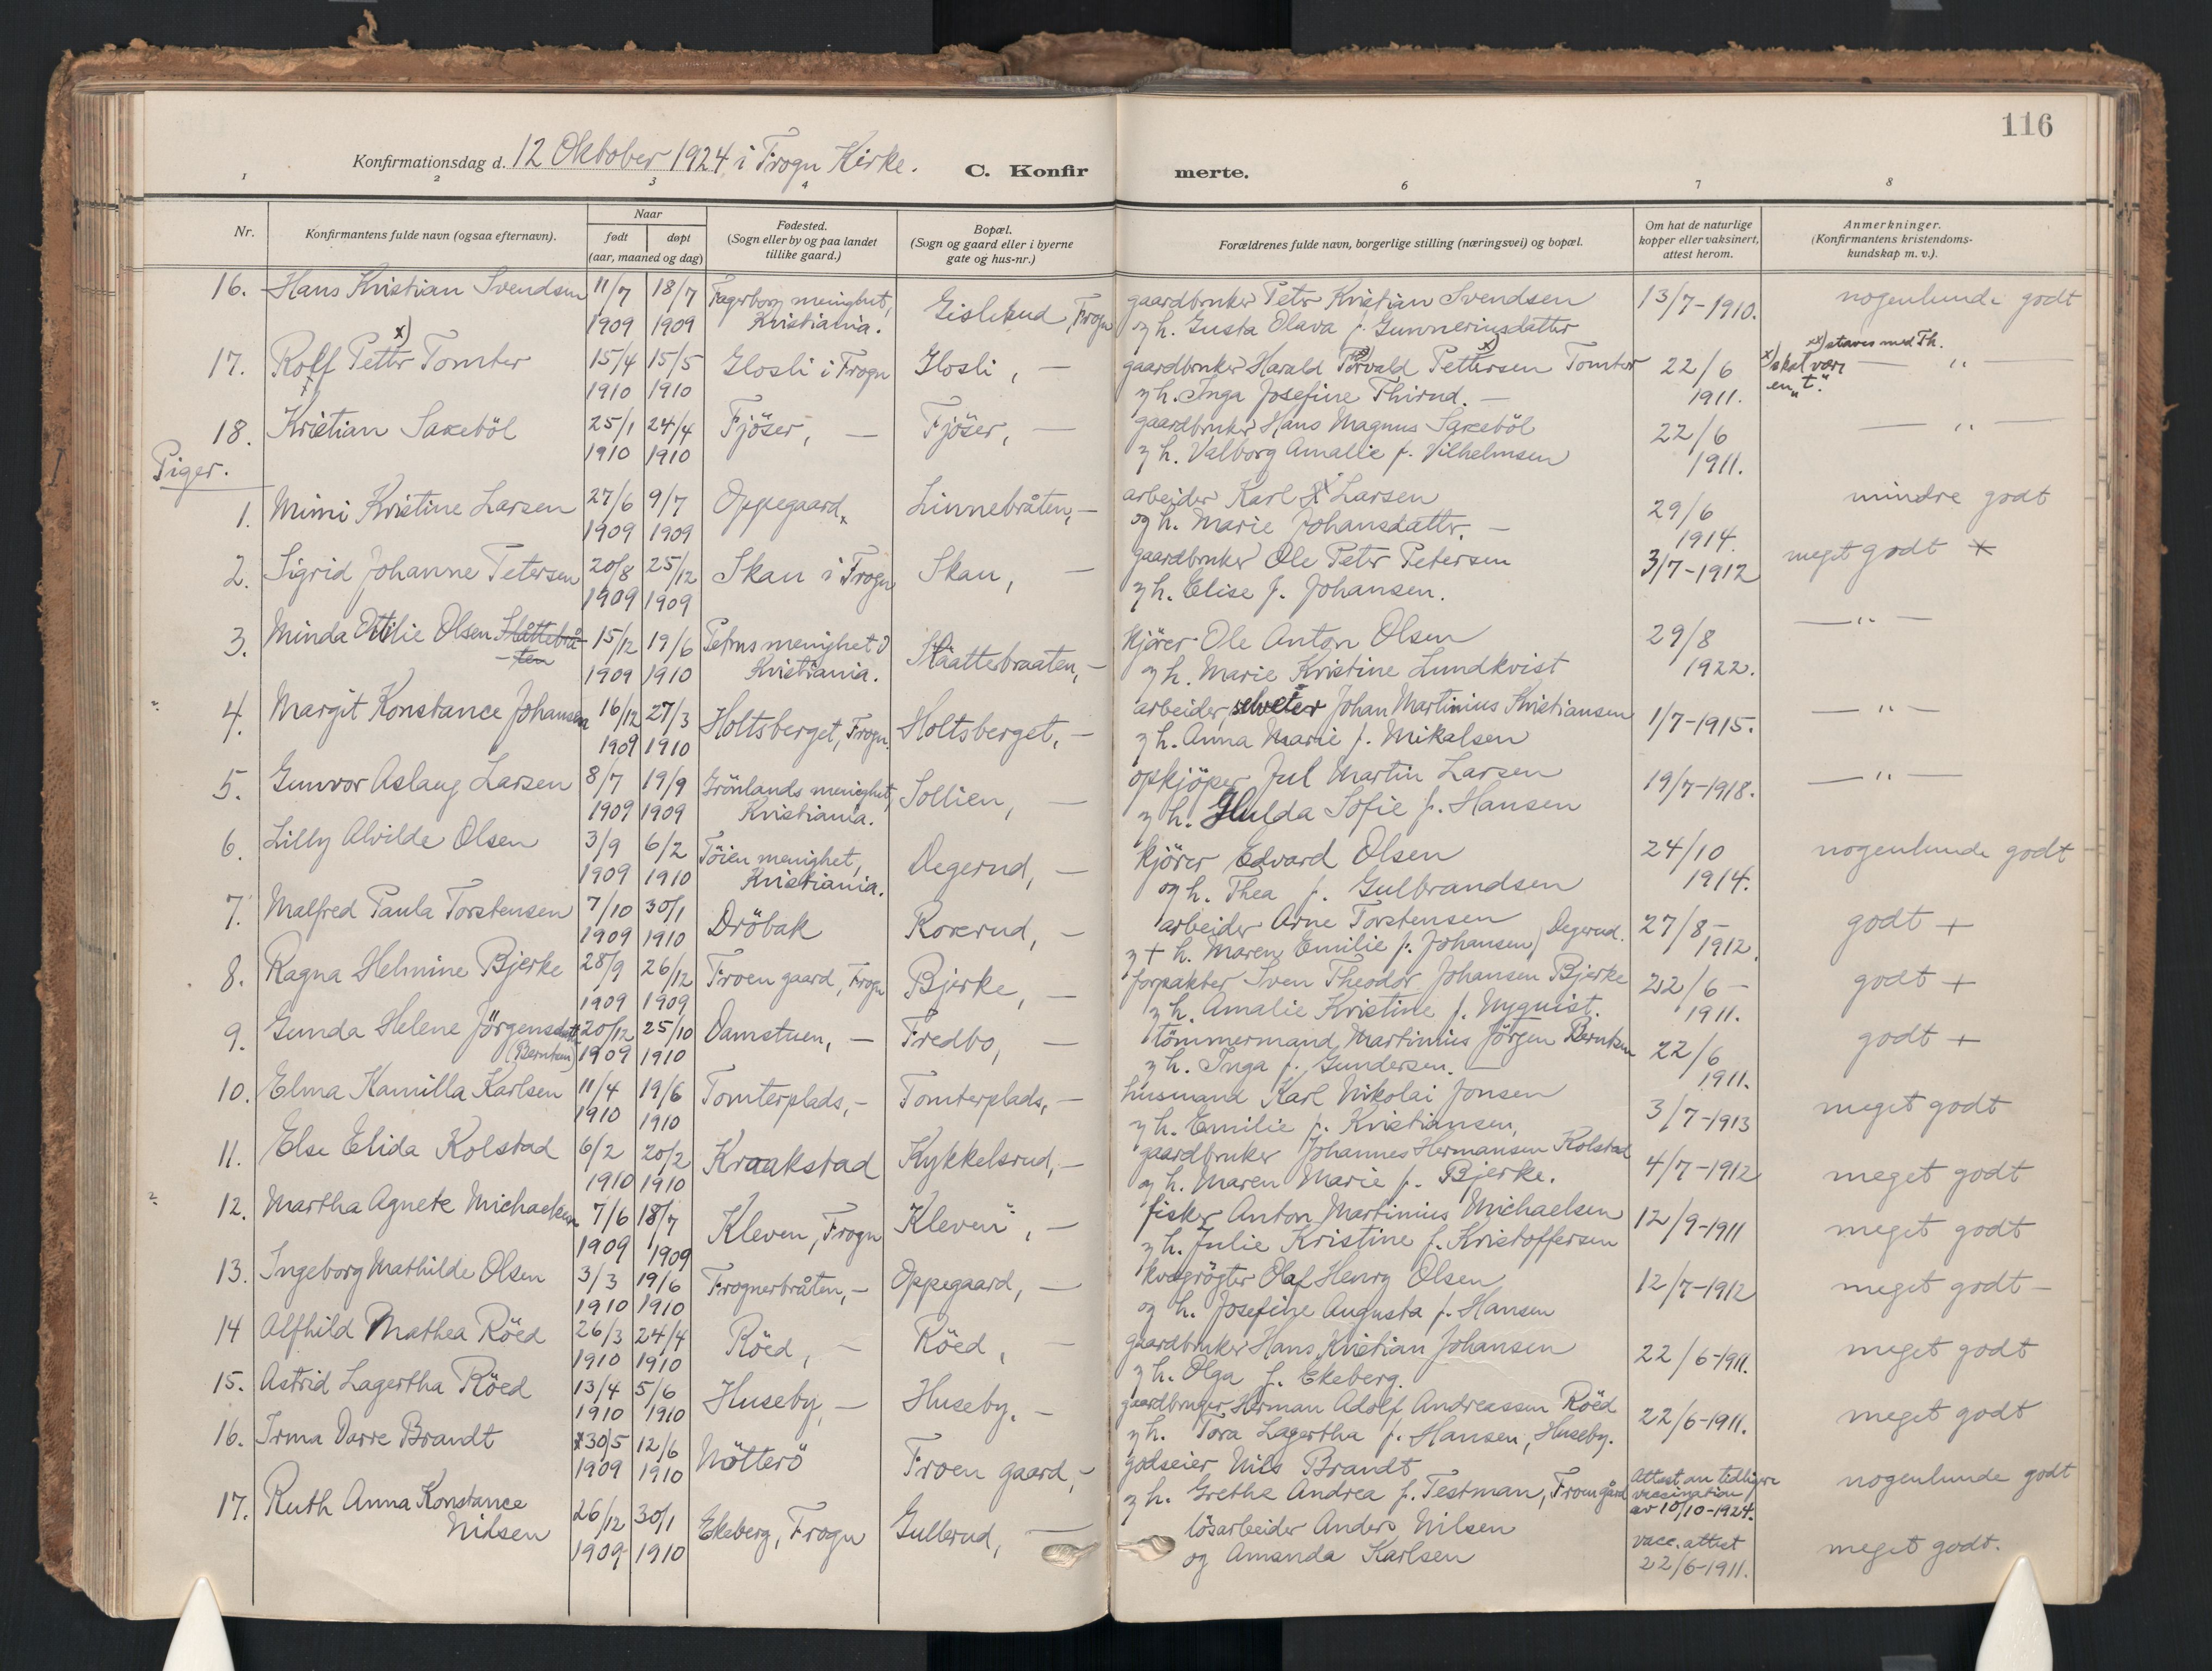 116
Konfirmationsdag d. 12 Oktober 1924 i Frogn Kirke.
C. Konfirmerte.
1 2 3 4 6 7 8
Nr.
Konfirmantens fulde navn (ogsaa efternavn).
Naar
født
døpt
(aar, maaned og dag)
Fødested.
(Sogn eller by og paa landet
tillike gaard.)
Bopæl.
(Sogn og gaard eller i byerne
gate og hus-nr.)
Forældrenes fulde navn, borgerlige stilling (næringsvei) og bopæl.
Om hat de naturlige
kopper eller vaksinert,
attest herom.
Anmerkninger.
(Konfirmantens kristendoms-
kundskap m. v.).
16. Hans Kristian Svendsen 11/7 18/7 Fagerborg menighet, Gislerud, Frogn gaardbruker Peter Kristian Svendsen 13/7-1910. nogenlunde godt
1909 1909 Kristiania. og h. Gusta Olava f. Gunneriusdatter
17. Rolf Petter x) Tomter 15/4 15/5 Glosli i Frogn Glosli, — gaardbruker Harald Torvald Pettersen Tomter 22/6 x) skal være en "t". xx) staves med Th. — " —
1910 1910 og h. Inga Josefine Thirud. — 1911.
18. Kristian Saxeböl 25/1 24/4 Fjöser, — Fjöser, — gaardbruker Hans Magnus Saxeböl 22/6 — " —
1910 1910 og h. Valborg Amalie f. Vilhelmsen 1911.
Piger.
1. Mimi Kristine Larsen 27/6 9/7 Oppegaard Linnebråten, — arbeider Karl Larsen 29/6 mindre godt
1909 1909 og h. Marie Johansdatter. — 1914.
2. Sigrid Johanne Petersen 20/8 25/12 Skau i Frogn Skau, — gaardbruker Ole Peter Petersen 3/7-1912 meget godt +
1909 1909 og h. Elise f. Johansen.
3. Minda Otilie Olsen Slåttebrå- 15/12 19/6 Petrus menighet Slaatterbraaten, — kjörer Ole Anton Olsen 29/8 — " —
-ten 1909 1910 Kristiania. og h. Marie Kristine Lundkvist 1922.
4. Margit Konstance Johansen 16/12 27/3 Holtsberget, Frogn. Holtsberget, — arbeider, selveier Johan Martinius Kristiansen 1/7-1915. — " —
1909 1910 og h. Anna Marie f. Mikalsen
5. Gunvor Aslaug Larsen 8/7 19/9 Grönlands menighet, Sollien, — opkjöper Jul Martin Larsen 19/7-1918. — " —
1909 1909 Kristiania. og h. Hulda Sofie f. Hansen
6. Lilly Alvilde Olsen 3/9 6/2 Töien menighet, Degerud, — kjörer Edvard Olsen 24/10 nogenlunde godt
1909 1910 Kristiania. og h. Thea f. Gulbrandsen 1914.
7. Malfred Paula Torstensen 7/10 30/1 Dröbak Koxerud, — arbeider Arne Torstensen 27/8- godt +
1909 1910 og + h. Maren Emilie f. Johansen) Degerud. 1912.
8. Ragna Helmine Bjerke 28/9 26/12 Froen gaard, Frogn Bjerke, — forpakter Sven Theodor Johansen Bjerke 22/6- godt +
1909 1909 og h. Amalie Kristine f. Nyquist. 1911.
9. Gunda Helene Jörgensdatter 20/12 25/10 Damstuen, — Fredbo, — tömmermand Martinius Jörgen Berntsen 22/6 godt +
(Berntsen) 1909 1910 og h. Inga f. Gundersen. 1911.
10. Elma Kamilla Karlsen 11/4 19/6 Tomterplads, — Tomterplads, — husmand Karl Nikolai Jonsen 3/7-1913 meget godt
1910 1910 og h. Emilie f. Kristiansen,
11. Else Elida Kolstad 6/2 20/2 Kraakstad Kykkelsrud, — gaardbruker Johannes Hermansen Kolstad 4/7-1912 meget godt
1910 1910 og h. Maren Marie f. Bjerke.
12. Martha Agnete Michaelsen 7/6 18/7 Kleven, Frogn Kleven, — fisker Anton Martinius Michaelsen 12/9-1911 meget godt
1909 1909 og h. Julie Kristine f. Kristoffersen
13. Ingeborg Mathilde Olsen 3/3 19/6 Frognerbråten, — Oppegaard, — kvægrögter Olaf Henry Olsen 12/7-1912 meget godt —
1910 1910 og h. Josefine Augusta f. Hansen
14 Alfhild Mathea Röed 26/3 24/4 Röed, — Röed, — gaardbruker Hans Kristian Johansen 22/6-1911. meget godt
1910 1910 og h. Olga f. Ekeberg.
15. Astrid Lagertha Röed 13/4 5/6 Huseby, — Huseby. — gaardbruger Herman Adolf Andreassen Röed 22/6-1911. meget godt
1910 1910 og h. Tora Lagertha f. Hansen, Huseby.
16. Irma Darre Brandt 30/5 12/6 Nötterö Froen gaard, — godseier Nils Brandt Attest om tidligere nogenlunde godt
1909 1910 og h. Grethe Andrea f. Testman, Froen gård vaccination
av 10/10-1924.
17. Ruth Anna Konstance 26/12 30/1 Ekeberg, Frogn Gullerud, — lösarbeider Anders Nilsen vacc. attest meget godt.
Nilsen 1909 1910 og Amanda Karlsen 22/6-1911.